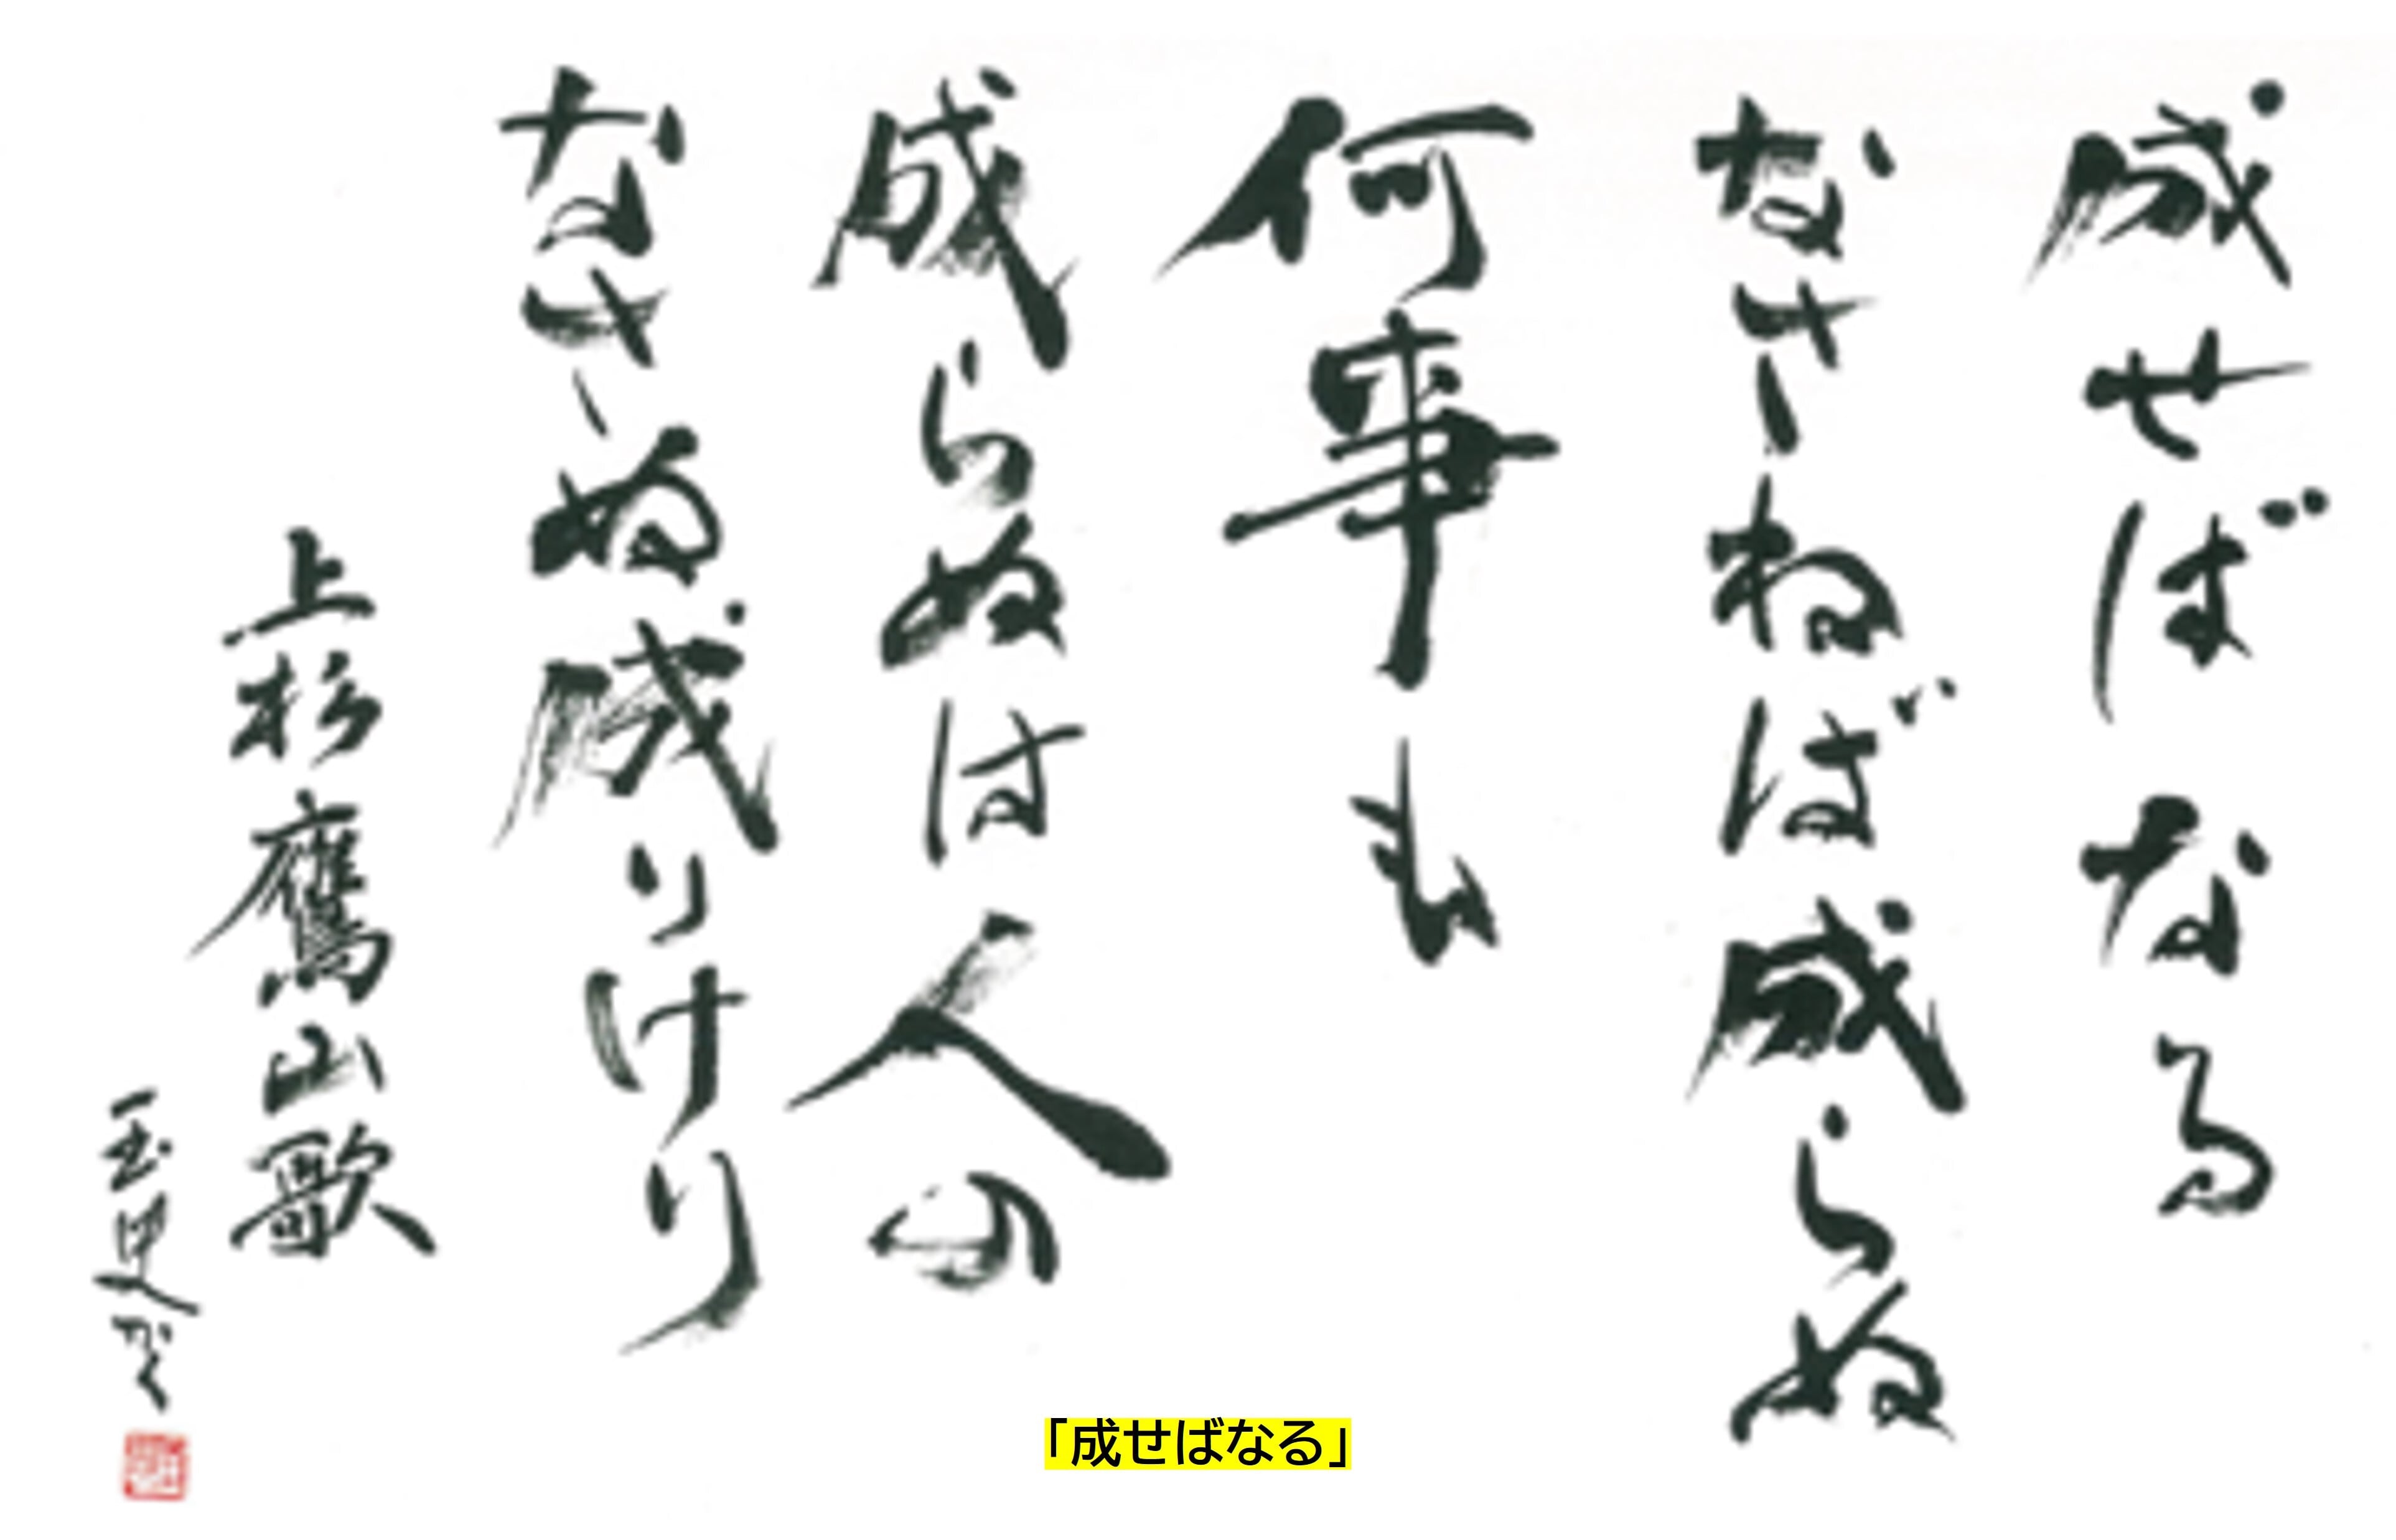 成せばなる
なさねば成らぬ
何事も
成らぬは人の
なさぬ成りけり
上杉鷹山歌
「成せばなる」